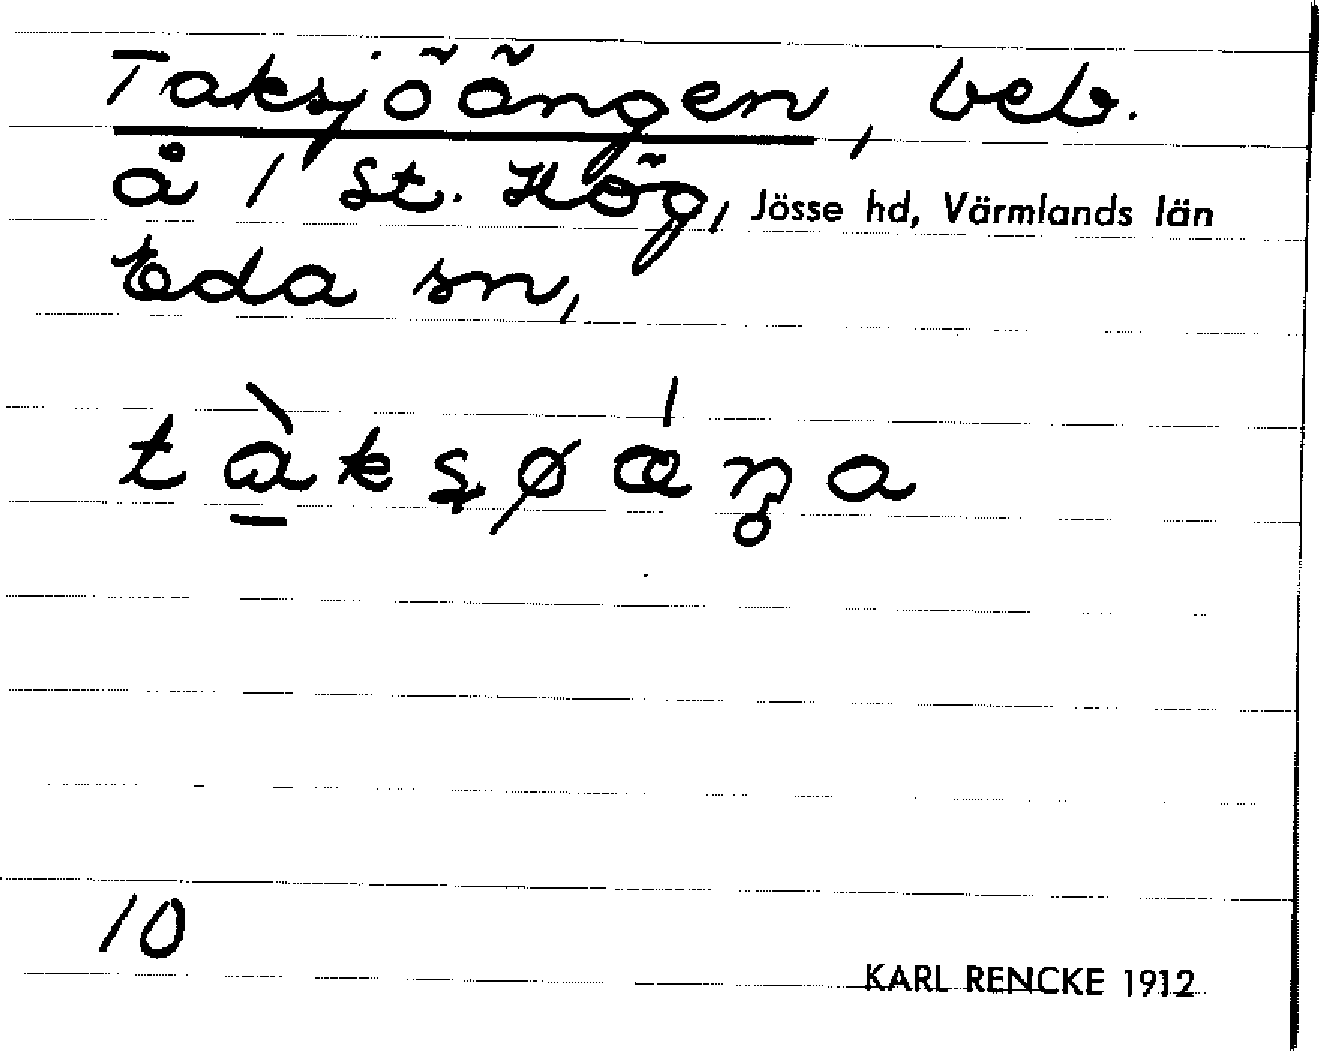 Taksjöängen, beb.
å 1 St. Hög, Jösse hd, Värmlands län
Eda sn,
tàksøæŋa
10
KARL RENCKE 1912